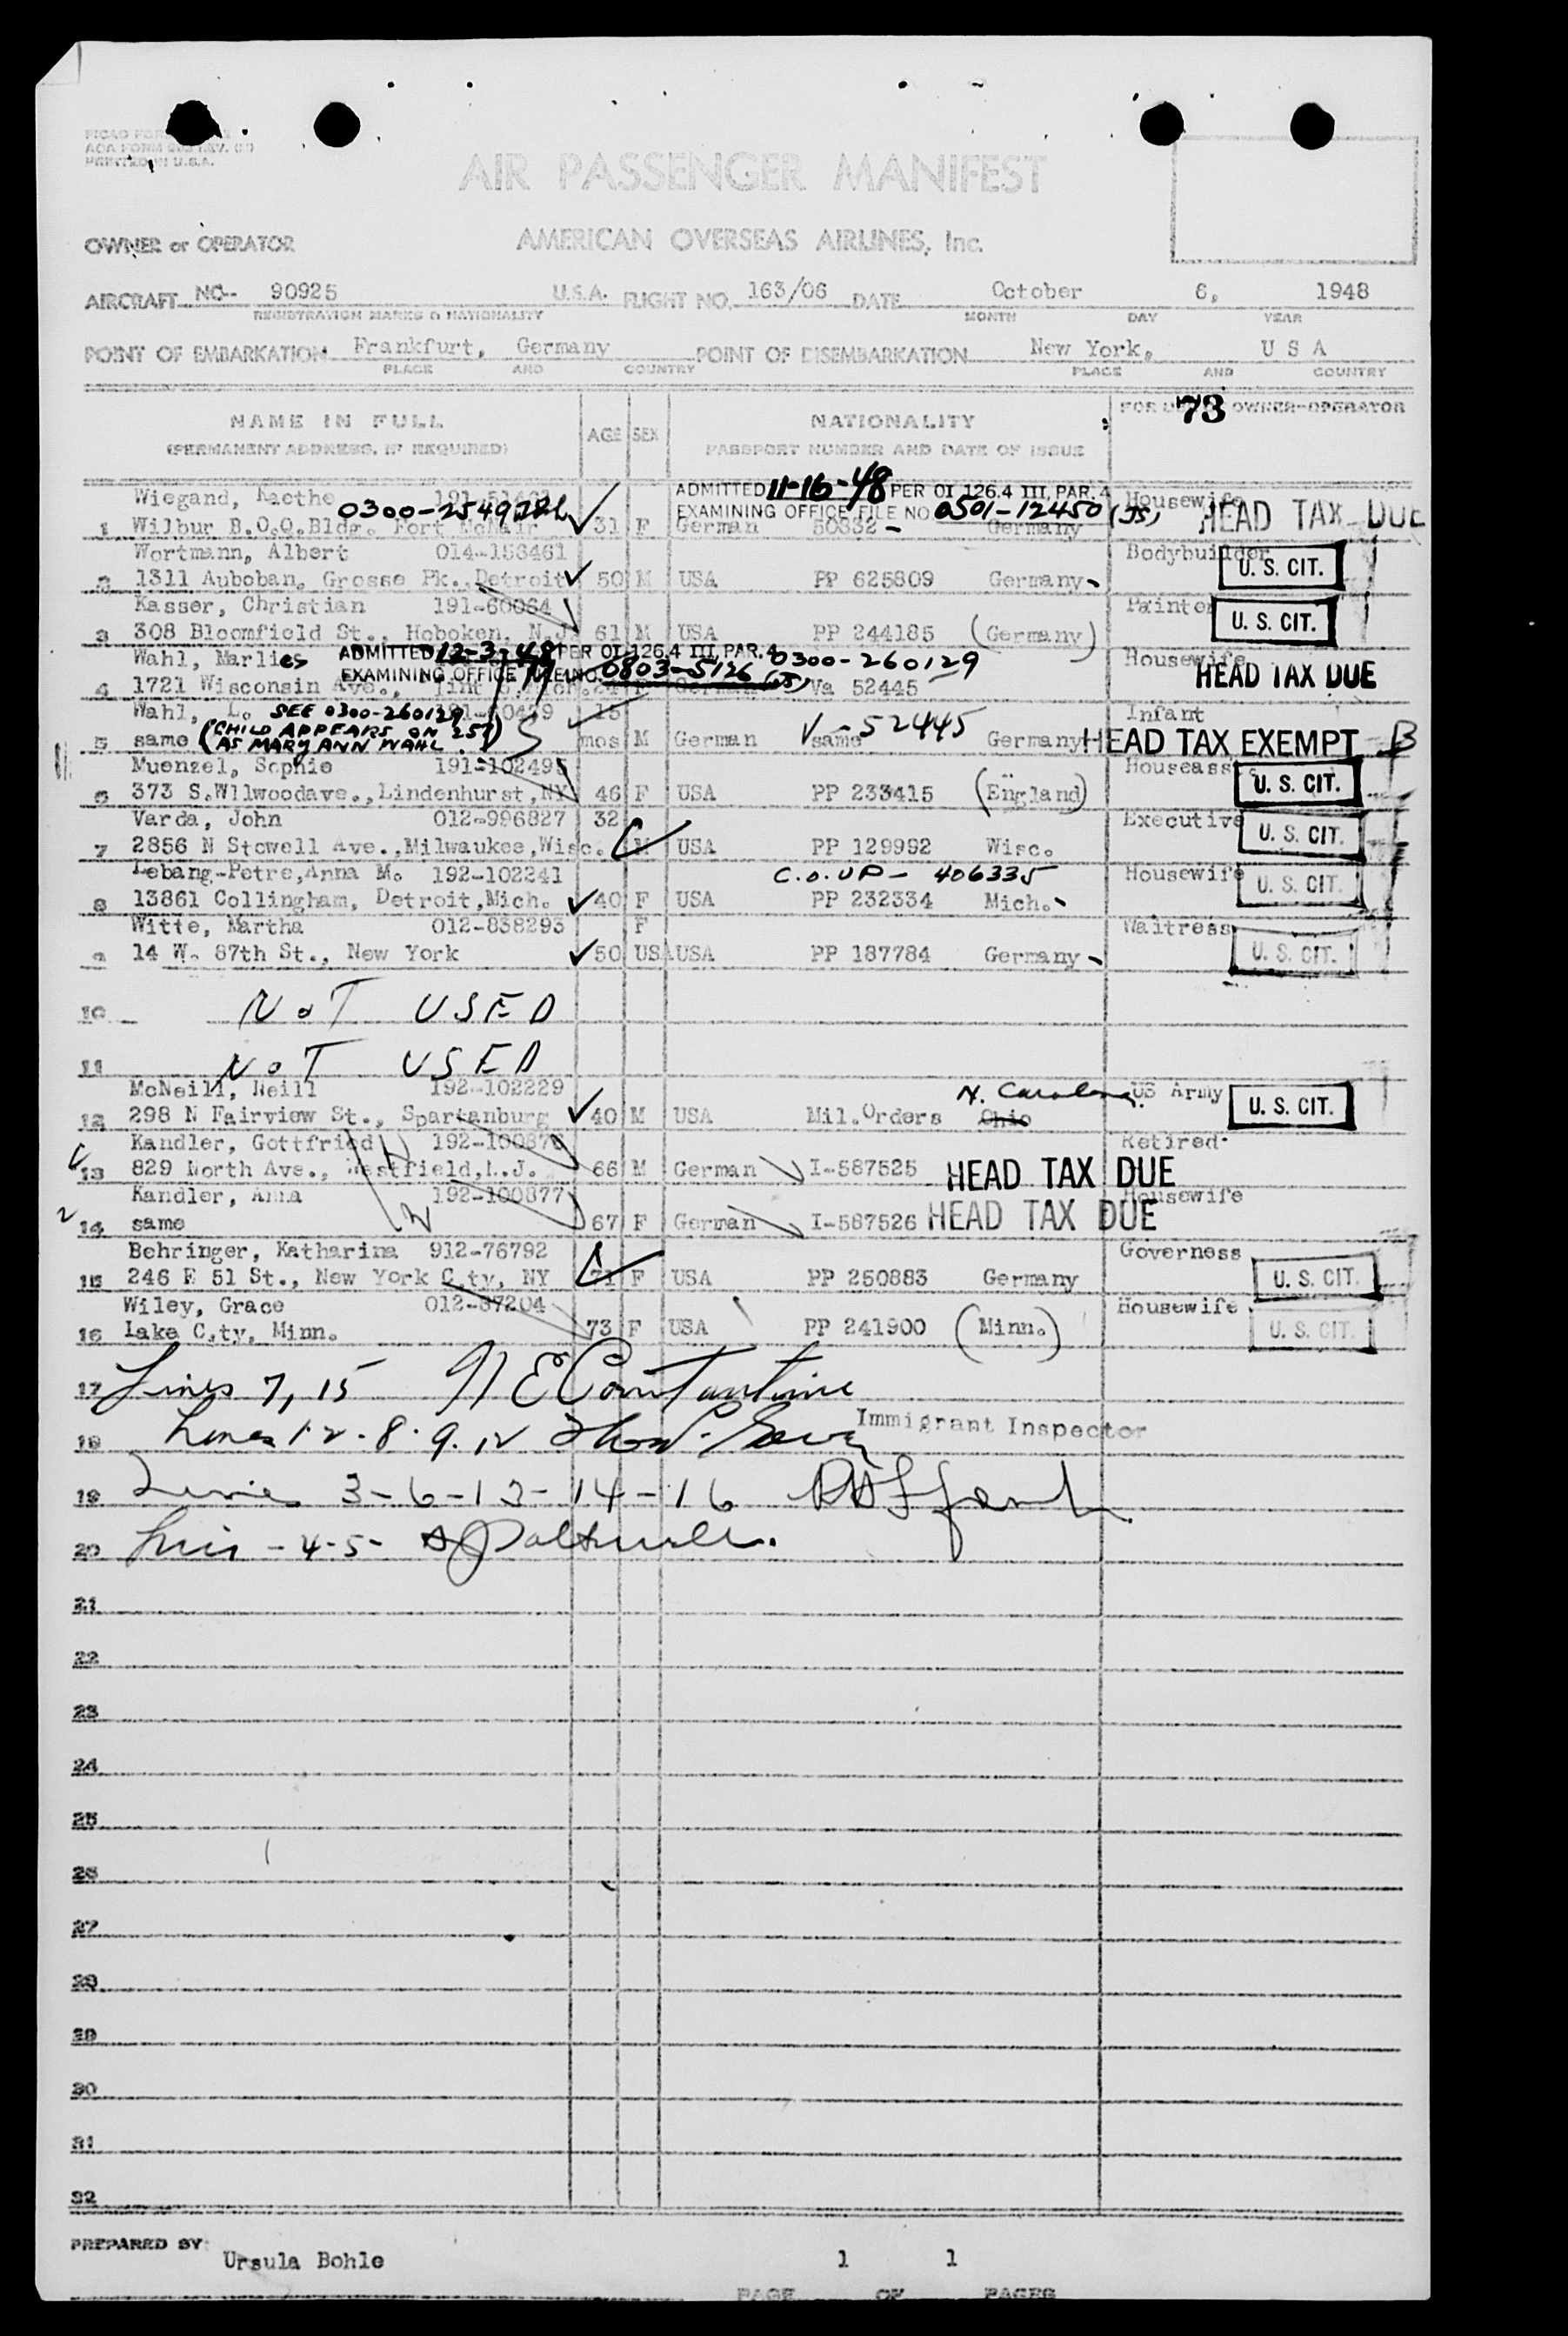 PRINTED IN U.S.A.
AIR PASSENGER MANIFEST
OWNER or OPERATOR AMERICAN OVERSEAS AIRLINES, Inc.
AIRCRAFT NC-- 90925 U.S.A. FLIGHT NO. 163/06 DATE October 6, 1948
REGISTRATION MARKS & NATIONALITY MONTH DAY YEAR
POINT OF EMBARKATION Frankfurt, Germany POINT OF DISEMBARKATION New York, U S A
PLACE AND COUNTRY PLACE AND COUNTRY
NAME IN FULL AGE SEX NATIONALITY 73 OWNER-OPERATOR
(PERMANENT ADDRESS, IF REQUIRED) PASSPORT NUMBER AND DATE OF ISSUE
Wiegand, Kaethe ADMITTED 11-16-48 PER OI 126.4 III, PAR. 4 Housewife
0300-2549 EXAMINING OFFICE FILE NO. 0501-12450 (JS) HEAD TAX DUE
1 Wilbur B.O.Q.Bldg. Fort McNair 31 F German 50332 - Germany
Wortmann, Albert 014-153461 Bodybuilder
2 1311 Auboban, Grosse Pk., Detroit 50 M USA PP 625809 Germany U. S. CIT.
Kasser, Christian 191-60064 Painter
3 308 Bloomfield St., Hoboken, N.J. 61 M USA PP 244185 (Germany) U. S. CIT.
Wahl, Marlies ADMITTED 12-3-48 PER OI 126.4 III, PAR. 4 0300-260129 Housewife
EXAMINING OFFICE FILE NO. 0803-5126 (JS) HEAD TAX DUE
4 1721 Wisconsin Ave., Va 52445
Wahl, L. SEE 0300-260129 15 Infant
5 same (CHILD APPEARS ON 257) mos M German same - 52445 Germany HEAD TAX EXEMPT B
AS MARY ANN WAHL
Muenzel, Sophie 191-102495 Houseass
6 373 S.Wllwoodave.,Lindenhurst,NY 46 F USA PP 233415 (England) U. S. CIT.
Varda, John 012-996827 32 Executive
7 2856 N Stowell Ave.,Milwaukee,Wisc. M USA PP 129992 Wisc. U. S. CIT.
Lebang-Petre,Anna M. 192-102241 C.O.UP- 406335 Housewife
8 13861 Collingham, Detroit,Mich. 40 F USA PP 232334 Mich. U. S. CIT.
Witte, Martha 012-838293 F Waitress
9 14 W. 87th St., New York 50 USA USA PP 187784 Germany U. S. CIT.
10 NOT USED
11 NOT USED
McNeill, Neill 192-102229 N. Carolina US Army
12 298 N Fairview St., Spartanburg 40 M USA Mil.Orders Ohio U. S. CIT.
Kandler, Gottfried 192-100876 Retired
13 829 North Ave., Westfield,N.J. 66 M German I-587525 HEAD TAX DUE
Kandler, Anna 192-100877 Housewife
14 same 67 F German I-587526 HEAD TAX DUE
Behringer, Katharina 912-76792 Governess
15 246 E 51 St., New York City, NY 71 F USA PP 250883 Germany U. S. CIT.
Wiley, Grace 012-87204 Housewife
16 Lake City, Minn. 73 F USA PP 241900 (Minn.) U. S. CIT.
17 Lines 7, 15 N E Constantine
Immigrant Inspector
18 Lines 1-2-8-9-12
19 Lines 3-6-13-14-16
20 Lines -4-5-
21
22
23
24
25
26
27
28
29
30
31
32
PREPARED BY
Ursula Bohle 1 1
PAGE OF PAGES